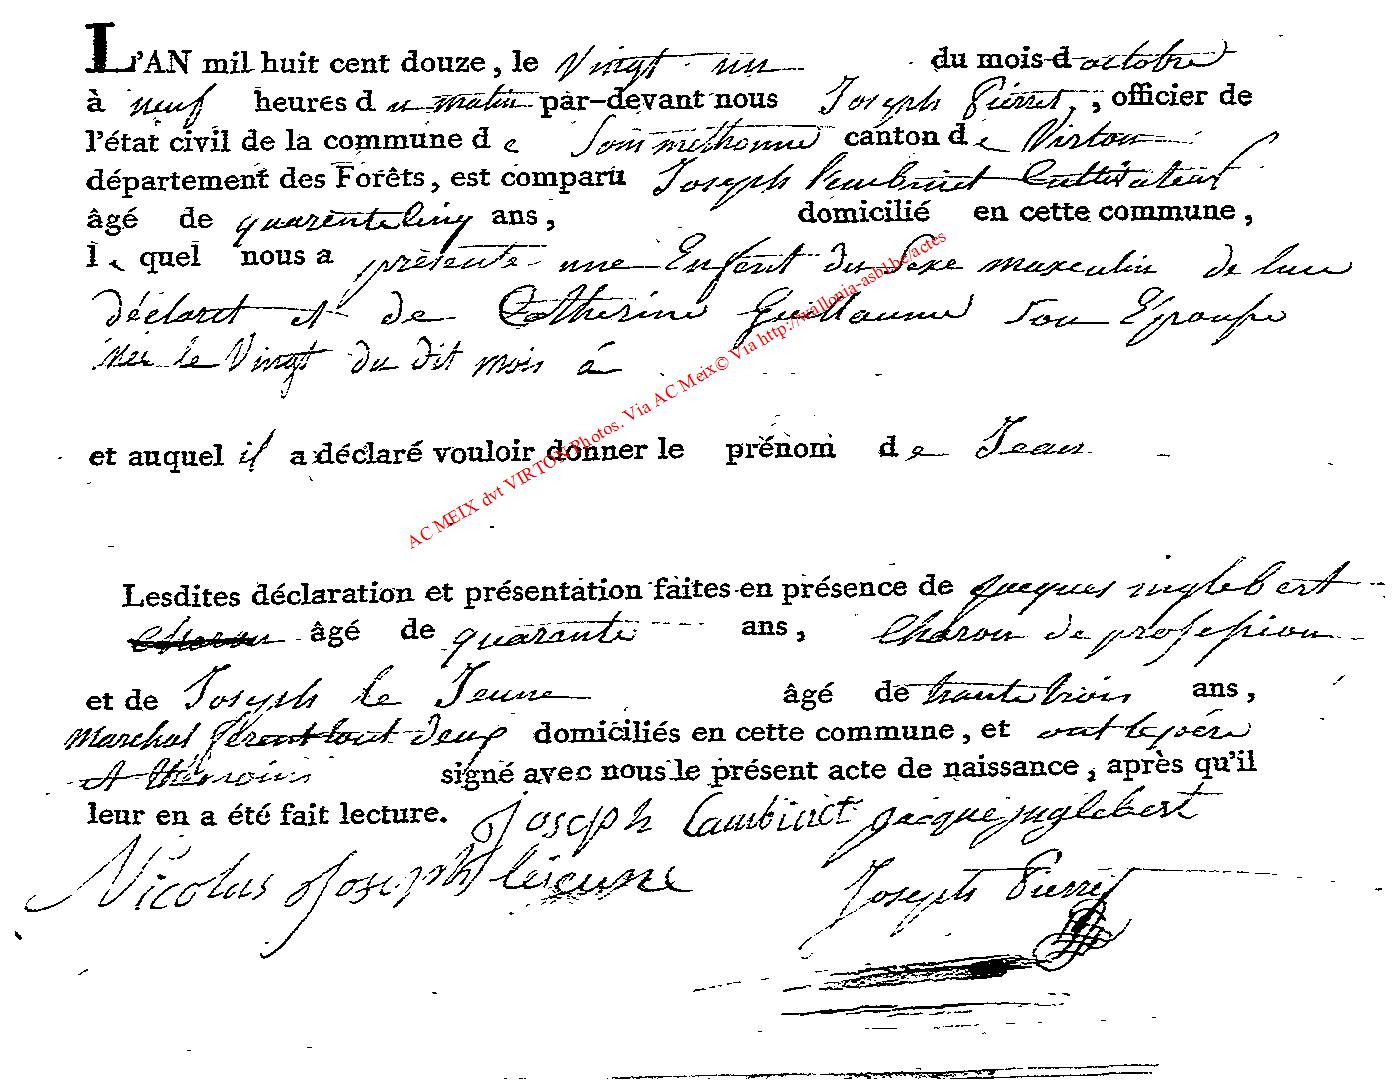 L'AN mil huit cent douze, le Vingt un du mois d octobre
à neuf heures d u matin par-devant nous Joseph Pierret, officier de
l'état civil de la commune d e Sommethonne canton d e Virton
département des Forêts, est comparu Joseph Lambinet Cultivateur
âgé de quarente cinq ans, domicilié en cette commune,
l e quel nous a présenté une Enfent du Sexe masculin de luu
déclaret et de Catherine Guillaume son Epouse
née le Vingt du dit mois à
et auquel il a déclaré vouloir donner le prénom d e Jean
Lesdites déclaration et présentation faites en présence de jacques inglebert
Charon âgé de quarante ans, Charon de profession
et de Joseph le Jeune âgé de trante trois ans,
Marchal ferent tout deux domiciliés en cette commune, et ont le pére
et témoins signé avec nous le présent acte de naissance, après qu'il
leur en a été fait lecture. Joseph Lambinet jacque jnglebert
Nicolas Joseph lejeune Joseph Pierret
AC MEIX dvt VIRTON Photos. Via AC Meix© Via http://wallonia-asbl.be/actes